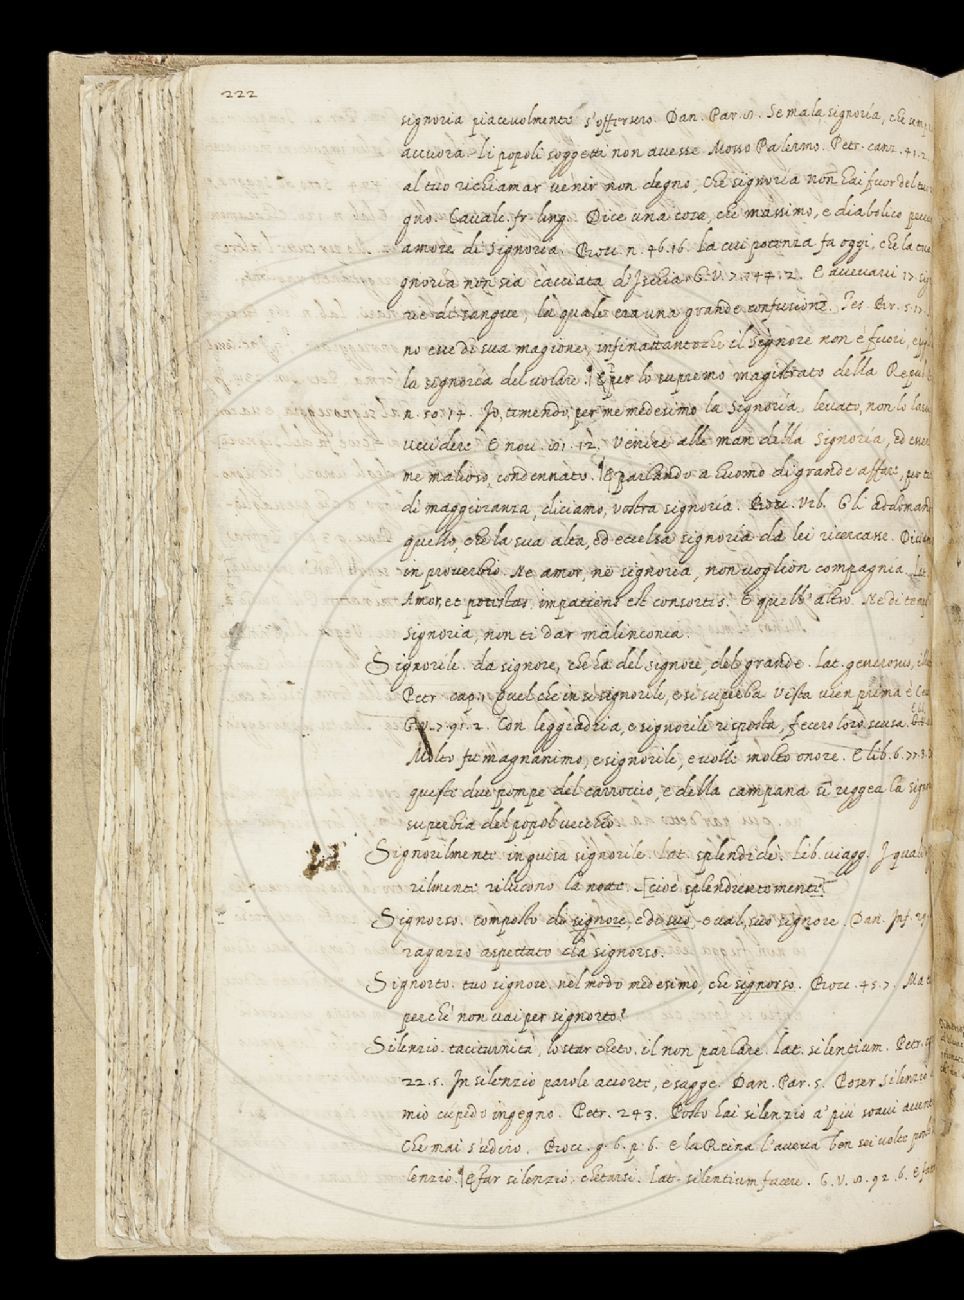 222
signoria piacevolmente s'offersero. Dan. Par. 8. Se mala signoria, che sempre
accuora li popoli soggetti non avesse Mosso Palermo. Petr. canz. 41. 2.
al tuo richiamar venir non degno, Che signoria non hai fuor del tuo
gno. Cavalc. fr. ling. Dice una cosa, che massimo, e diabolico
amore di Signoria. Bocc. n. 46. 16. la cui potenza fa oggi, che la tua
gnoria non sia cacciata d'Ischia. G. V. 7. 144. 2. E avevavi 17. sig
rie di sangue, la quale era una grande confusione. Tes. Br. 5. 17.
no esce di sua magione, infinattantoche il Signore non è fuori,
la signoria del volare. E per lo supremo magistrato della Repub
n. 50. 14. Io, temendo, per me medesimo la Signoria levato, non lo lascia
uccidere. E nov. 81. 12. Venire alle man della Signoria, ed essere
me malioso, condennato. E parlando a huomo di grande affare, per
di maggioranza, diciamo, vostra signoria. Bocc. Urb. Gli addomand
quello, che la sua alta, ed eccelsa signoria da lei ricercasse. Dicia
in proverbio. Ne amor, ne signoria, non voglion compagnia. Lat.
Amor, et potestas, impatiens est consortis. E quell' altro. Ne di tempo
Signoria, non ti dar malinconia.
Signorile. da signore, che ha del signore, del grande. Lat. generosus,
Petr. cap. Quel che in sì signorile, e sì superba Vista vien prima è
G. V. 7. 91. 2. Con leggiadria, e signorile risposta, fecero loro scusa.
Molto fu magnanimo, e signorile, e volle molto onore. E lib. 6. 77. 3.
queste due pompe del carroccio, e della campana si reggea la signo
superbia del popol vecchio
Signorilmente in guisa signorile. Lat. splendidè. Lib. viagg. I quali
rilmente rilucono la notte. cioè splendientemente
Signorso. composto di signore, e di suo, e val, suo signore. Dan. Inf. 29
ragazzo aspettato da signorso.
Signorto. tuo signore, nel modo medesimo, che signorso. Bocc. 45. 7. Ma
perche non vai per signorto?
Silenzio. taciturnità, lo star cheto, il non parlare. Lat. silentium. Petr.
22. 5. In silenzio parole accorte, e sagge. Dan. Par. 5. Poser silenzio
mio cupido ingegno. Petr. 243. Posto hai silenzio a' più soavi accenti
Che mai s'udiro. Bocc. g. 6. p. 6. e la Reina l'aveva ben sei volte posto
lenzio. E far silenzio, chetarsi. Lat. silentium facere. G. V. 8. 92. 6. E fatto